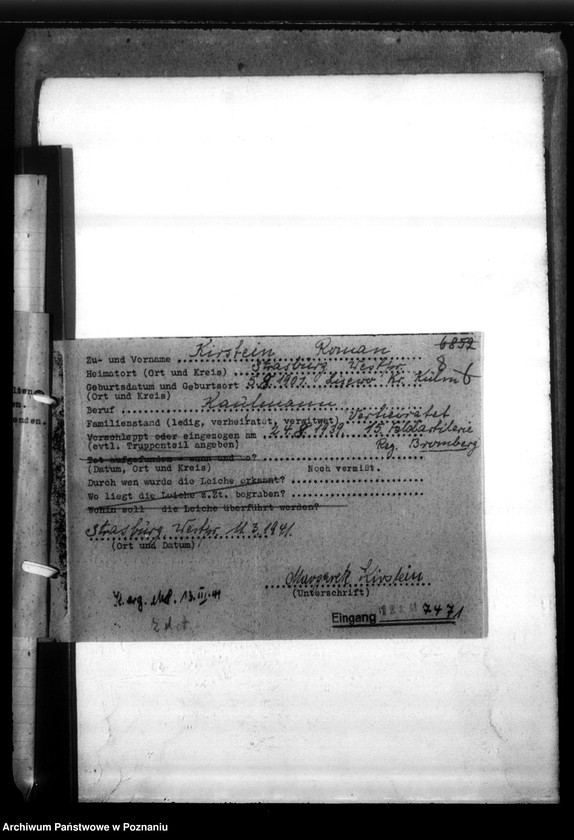 6852
Zu- und Vorname Kirstein Roman
8
Heimatort (Ort und Kreis) Strasburg Westpr.
Geburtsdatum und Geburtsort 5.8.1901. Kr. Kulm 6
(Ort und Kreis)
Beruf Kaufmann
Familienstand (ledig, verheiratet, verwitwet) Verheiratet
Verschleppt oder eingezogen am 24.8.1939. 15. Feldartilerie
(evtl. Truppenteil angeben) Reg. Bromberg
Tot aufgefunden wann und wo?
(Datum, Ort und Kreis) Noch vermißt.
Durch wen wurde die Leiche erkannt?
Wo liegt die Leiche z.Zt. begraben?
Wohin soll die Leiche überführt werden?
Strasburg, Westpr. 11.3.1941.
(Ort und Datum)
Kirstein
(Unterschrift)
13.III.41
Eingang 7471
lien
en.
enden.
Archiwum Państwowe w Poznaniu